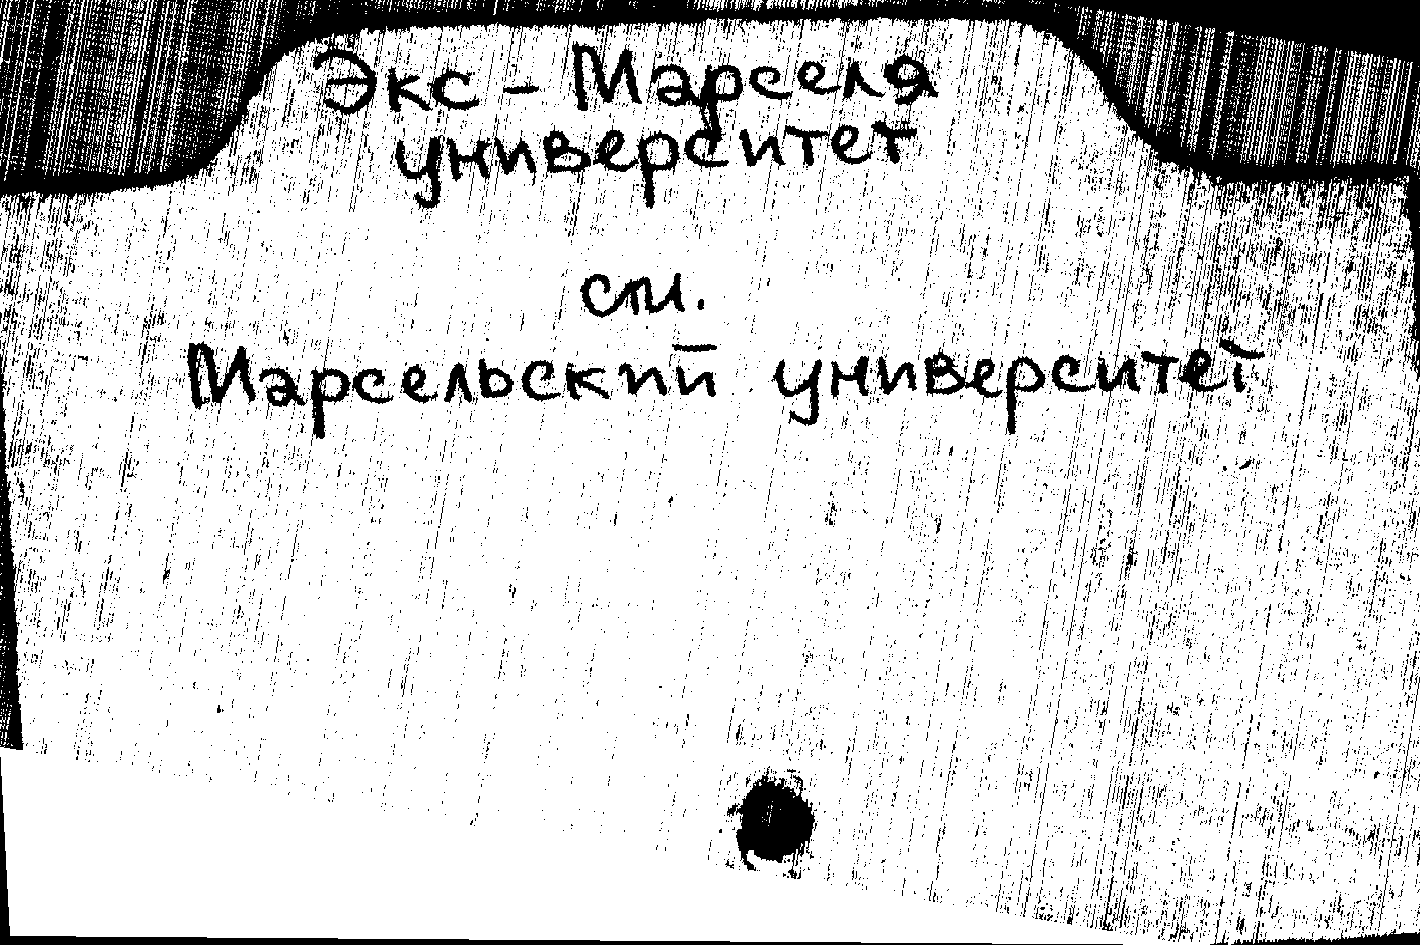 Экс - Марселя
университет
см.
Марсельский университет